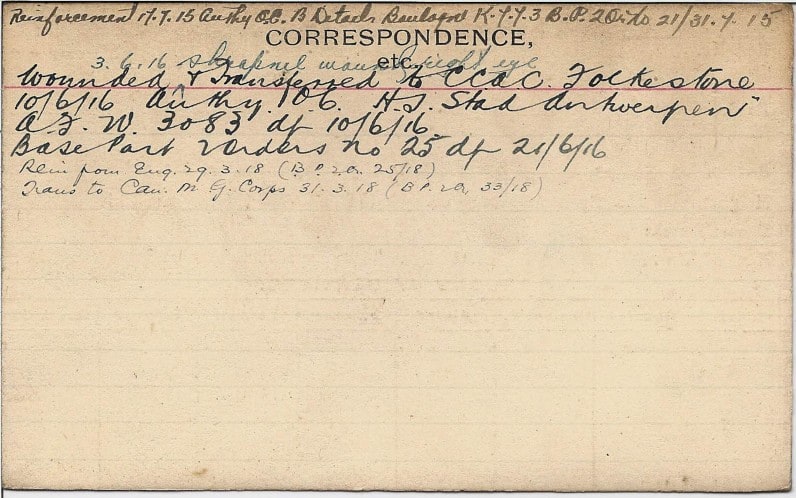 Reinforcement 17.7.15 Authy O.C. B Details Boulogne K.7.7.3 B.P. 2 Ords 21/31.7.15
CORRESPONDENCE,
etc.
3.6.16 shrapnel wound right eye
Wounded & Transferred to C.C.A.C. Folkestone
10/6/16 Authy O.C. H.S. Stad Antwerpen"
A.F.W. 3083 df 10/6/16
Base Part 2 Orders no 25 df 21/6/16
Rein from Eng. 29.3.18 (B.P. 2.O. 25/18)
Trans to Can. M. G. Corps 31.3.18 (B.P. 2.O. 33/18)